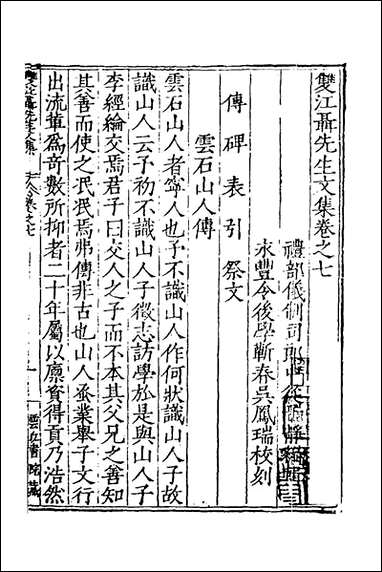 雙江聶先生文集卷之七
禮部儀制司郎中
永豐令後學蘄春吳鳳瑞校刻
傳碑表引祭文
雲石山人傳
雲石山人者寧人也予不識山人作何狀識山人子故
識山人云予初不識山人子徵志訪學於是與山人子
李經綸交焉君子曰交人之子而不本其父兄之善知
其善而使之泯泯焉弗傳非古也山人蚤業舉子文行
出流輩爲奇數所抑者二十年屬以廪資得貢乃浩然
雙江聶先生文集
卷之七
雲丘書院藏